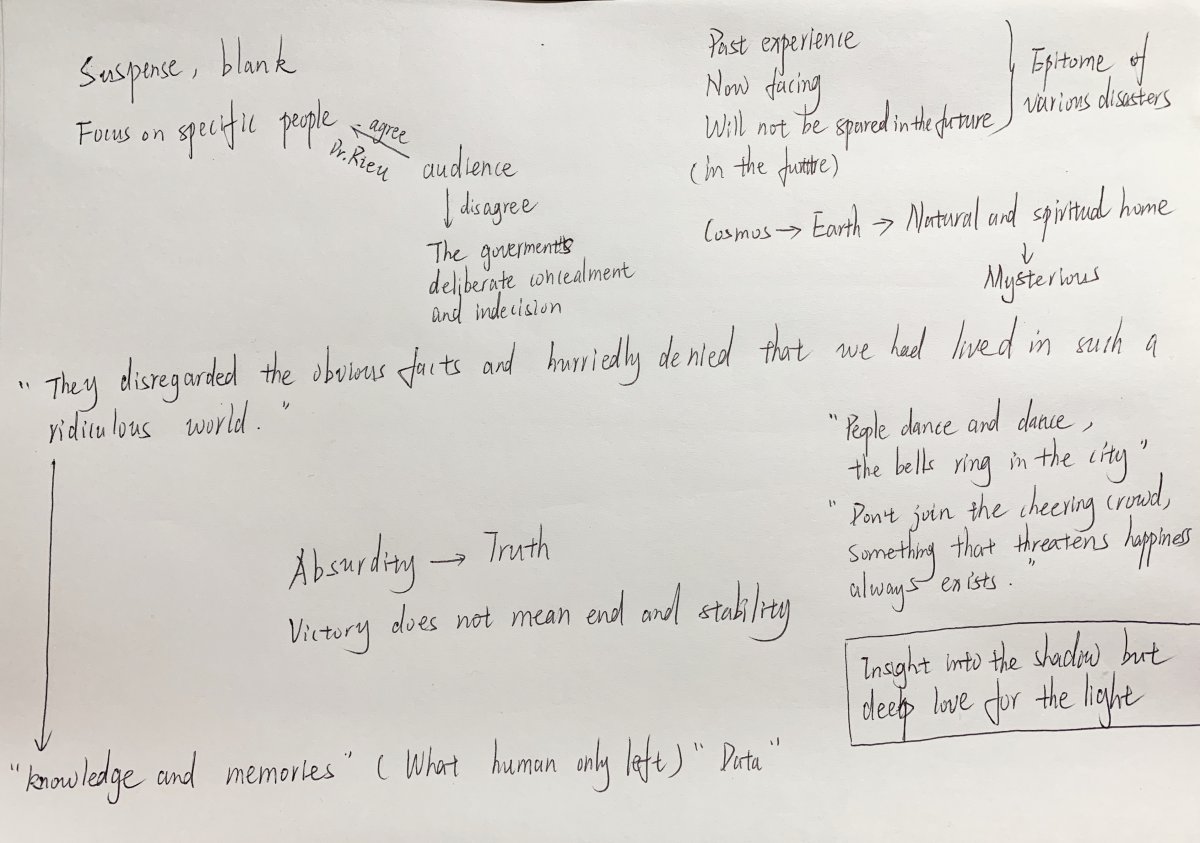 Suspense, blank
Focus on specific people
agree
Dr.Rieu
audience
disagree
The goverment's
deliberate concealment
and indecision
Past experience
Now facing
Will not be spared in the future
(in the future)
Epitome of
various disasters
Cosmos → Earth → Natural and spiritual home
Mysterious
" They disregarded the obvious facts and hurriedly denied that we had lived in such a
ridiculous world. "
" People dance and dance,
the bells ring in the city "
" Don't join the cheering crowd,
something that threatens happiness
always exists. "
Absurdity → Truth
Victory does not mean end and stability
Insight into the shadow but
deep love for the light
"knowledge and memories" ( What human only left ) " Data "